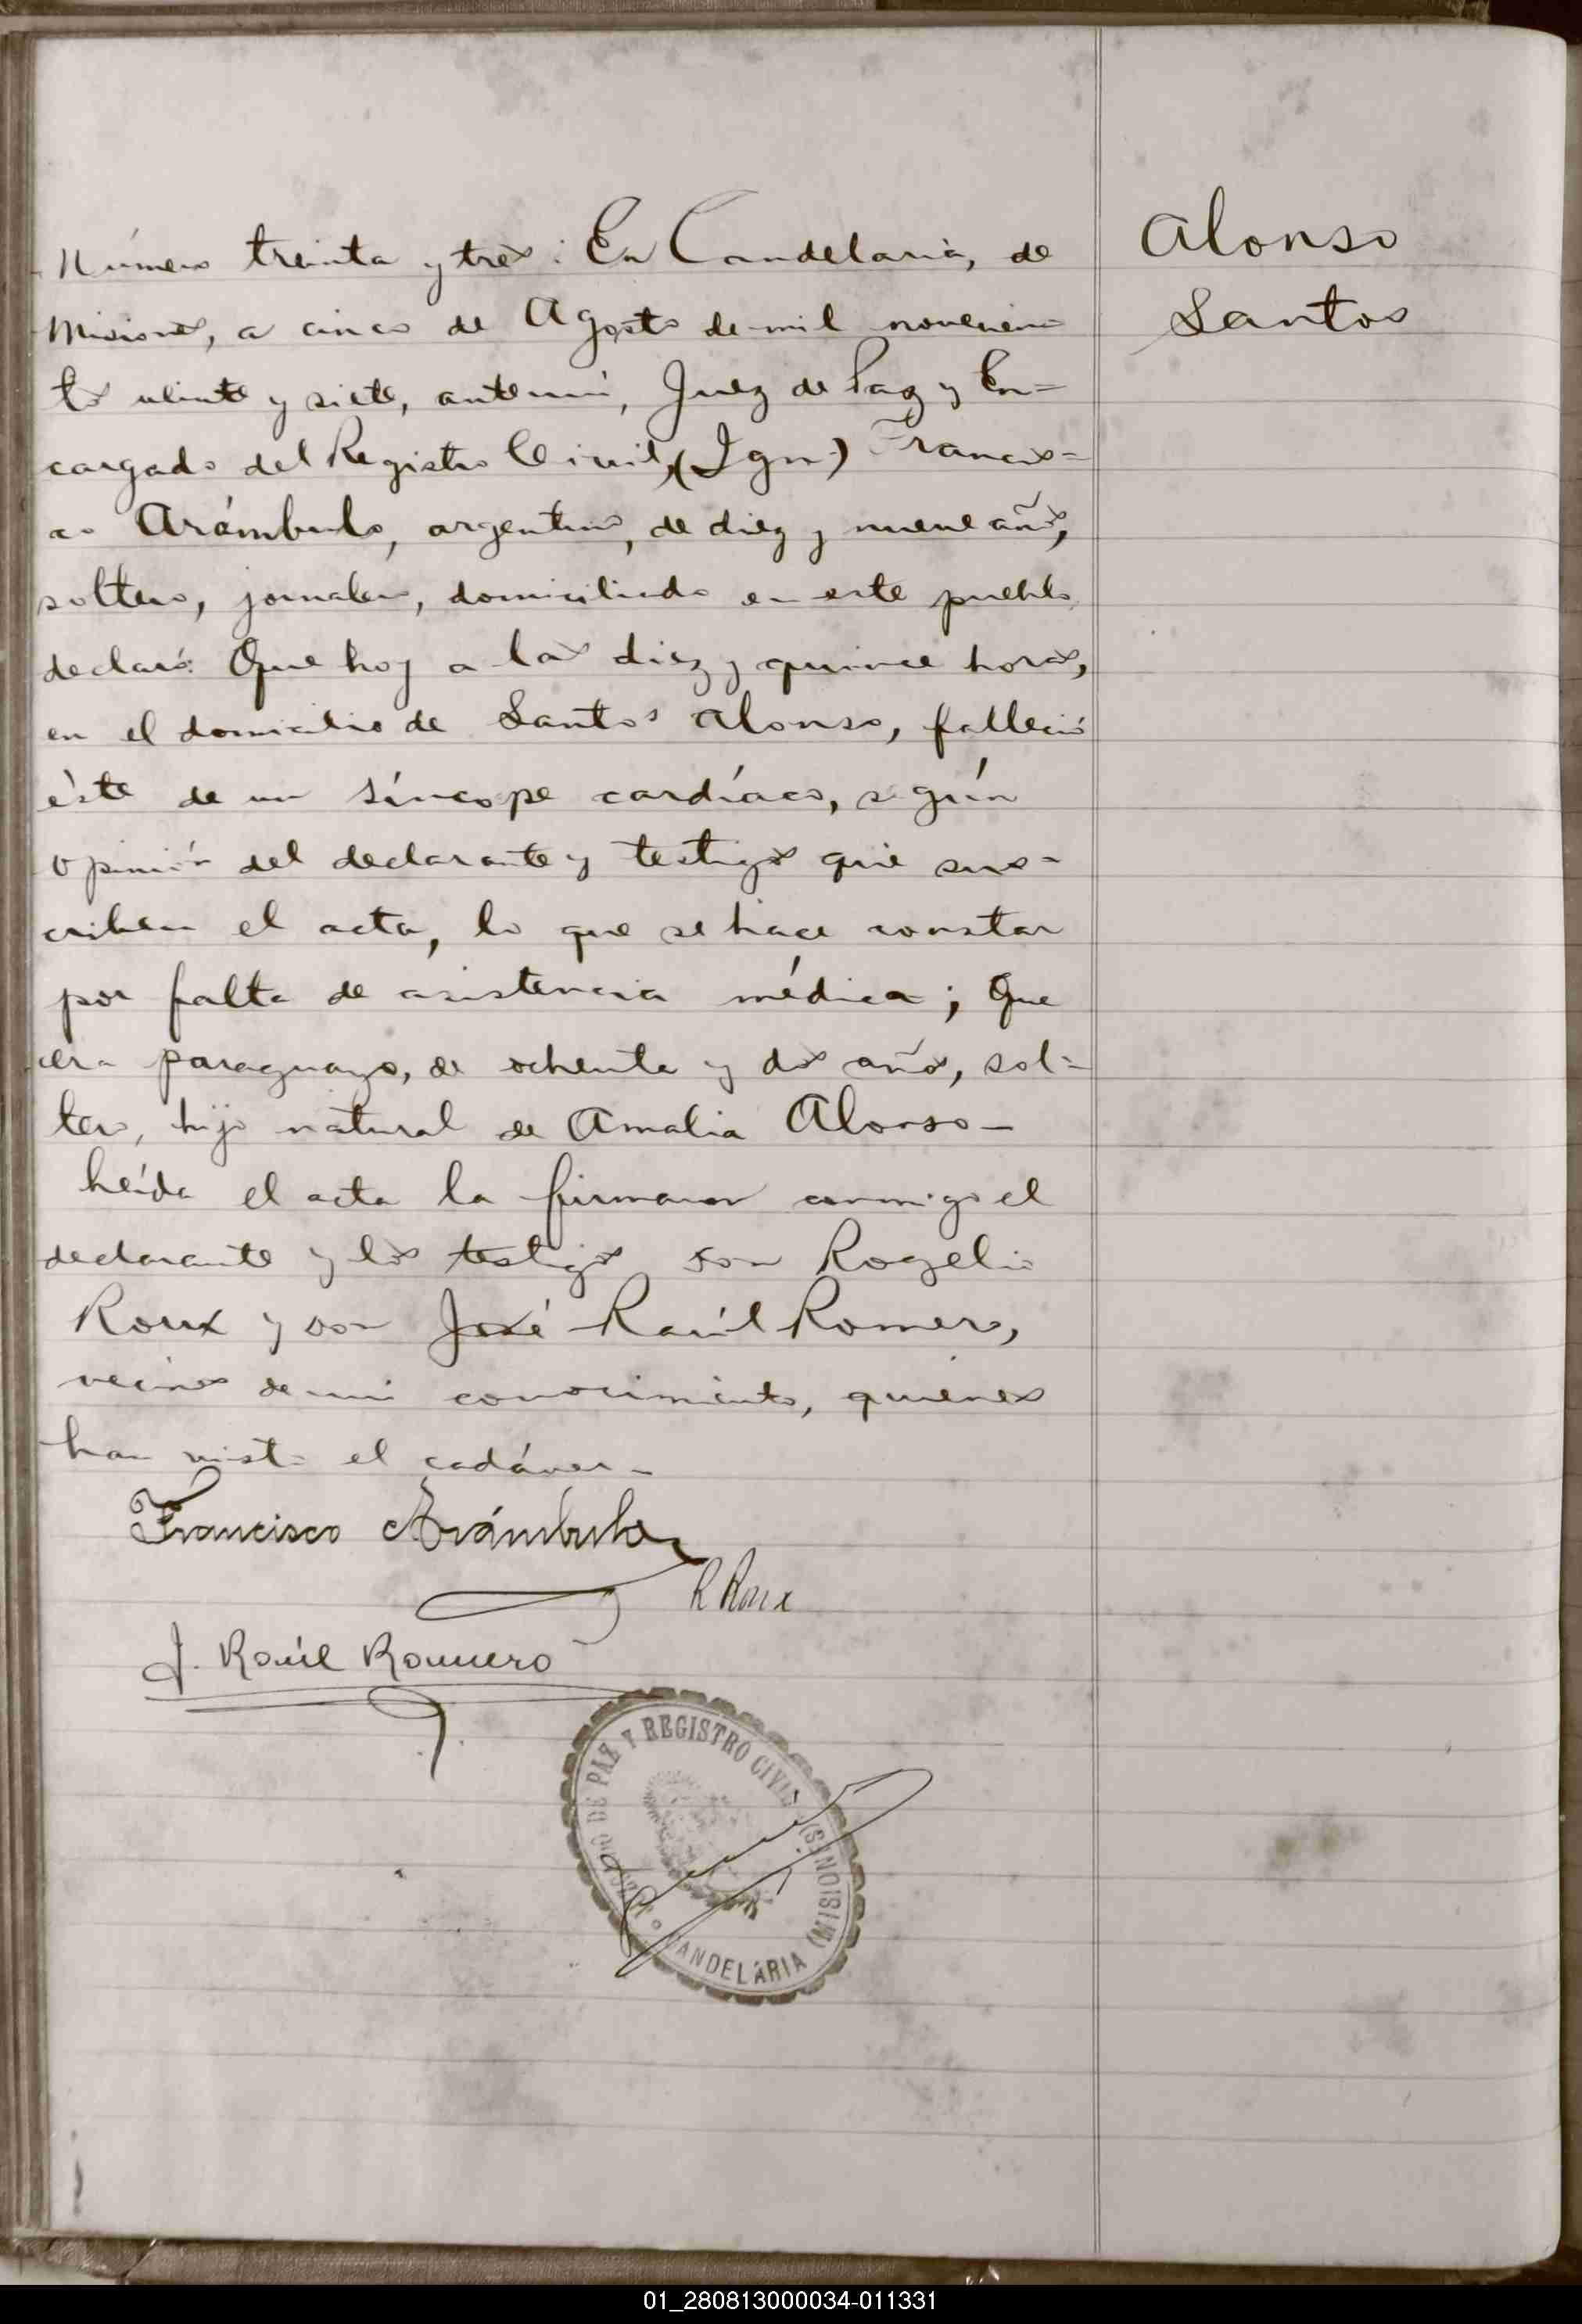 Alonso
Santos
Número treinta y tres: En Candelaria, de
Misiones, a cinco de Agosto de mil novecien=
tos veinte y siete, ante mí, Juez de Paz y En=
cargado del Registro Civil, (Ign.) Francis=
co Arámbulo, argentino, de diez y nueve años,
soltero, jornalero, domiciliado en este pueblo,
declaró: Que hoy a las diez y quince horas,
en el domicilio de Santos Alonso, falleció
éste de un síncope cardíaco, según
opinión del declarante y testigos que sus=
criben el acta, lo que se hace constar
por falta de asistencia médica; Que
era paraguayo, de ochenta y dos años, sol=
tero, hijo natural de Amalia Alonso-
Leída el acta la firmaron conmigo el
declarante y los testigos don Rogelio
Roux y don José Raúl Romero,
vecinos de mi conocimiento, quienes
han visto el cadáver.-
Francisco Arámbulo
R Roux
J. Raúl Romero
JUZGADO DE PAZ Y REGISTRO CIVIL (MISIONES)
CANDELARIA
01_280813000034-011331